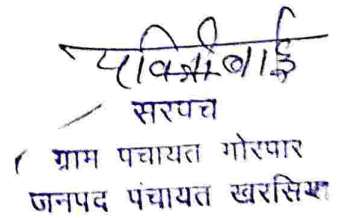 पवित्री बाई
सरपच
ग्राम पचायत गोरपार
जनपद पंचायत खरसिया